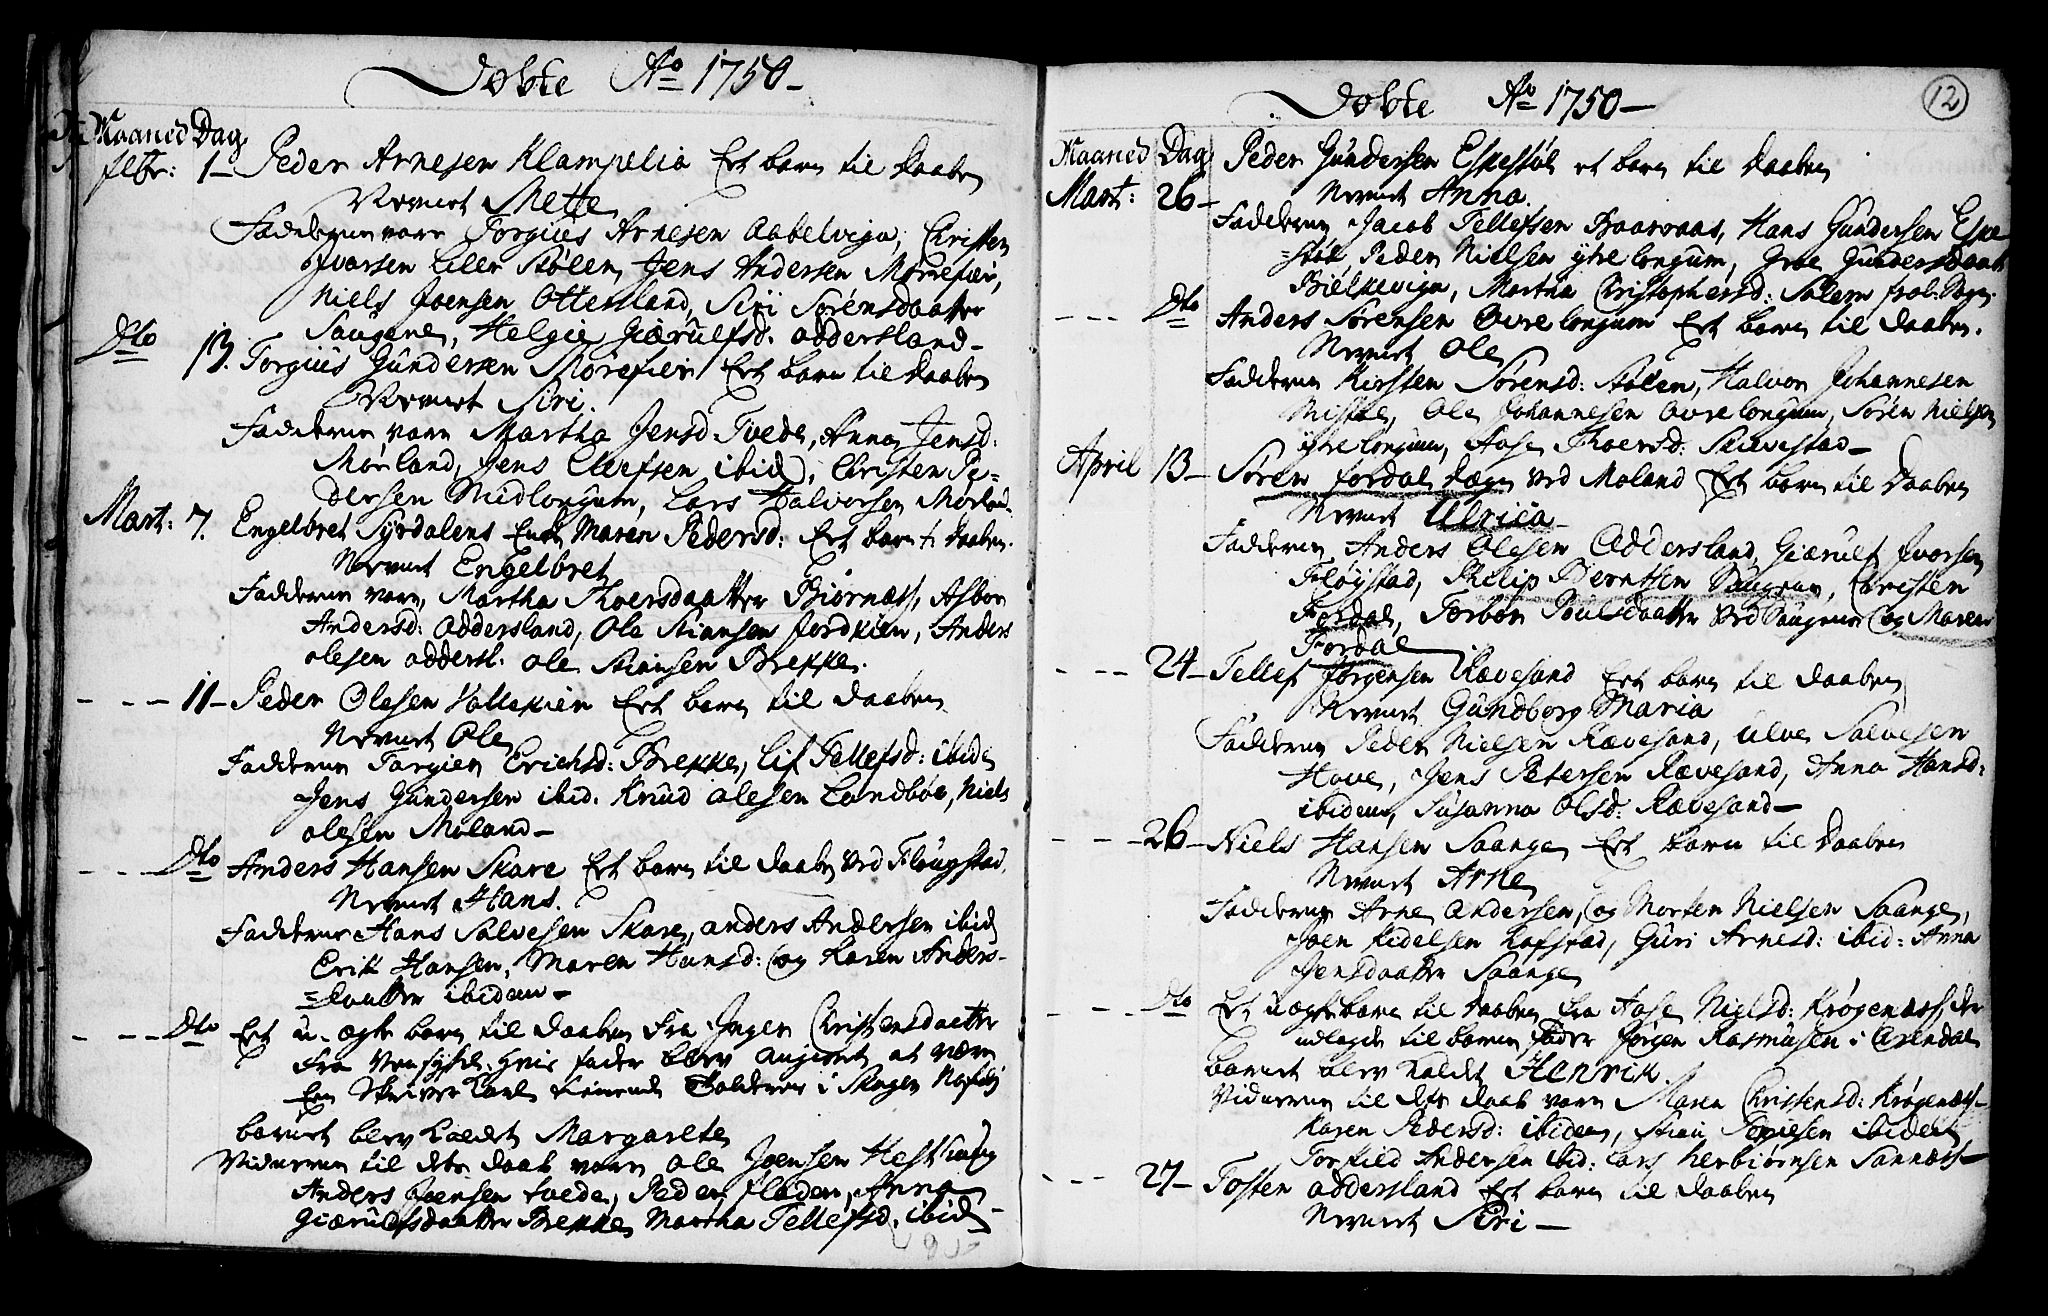 Døbte Ao 1750-
Maaned Dag
febr: 1- Peder Arnesen Klampelia Et barn til Daaben
Nevnt Mette
Faddernes vare Torgius Arnesen Aabelvign, Christen
Ivarsen Liler Stølen, Jens Andersen Mørrefier,
Niels Joensen Ottersland, Siri Sørensdaatter
Saugene, Helgie Giærulfsd: addersland-
Dto 13. Torgius Gundersen Morefier Et barn til Daaben
Nevnt Siri.
Fadderne vare Martha Jensd Tvede, Anna Jensd:
Mørland, Jens Ellefsen ibid, Christen Pe-
dersen Midlongum, Lars Halvorsen Mørland.
Mart: 7. Engelbret Syrdalens Enke Maren Pedersd: Et barn t: daaben.
Nevnt Engelbret
Fadderne vare, Martha Thoersdaatter Biørnæss, Asbor
Andersd: addersland, Ole Stiansen Jordkier, Anders
olesen addersl. ole Stiansen Brekke.
- - - 11- Peder Olesen Vallekier Et barn til daaben
Nevnt Ole
Fadderne Torgier Erichsd: Brekke, Lif Tellefsd: ibid
Jens Gundersen ibid. Knud olesen Landbøe, Niels
olesen Moland-
- - - Dto Anders Hansen Skare Et barn til daaben ved Fløugstad,
Nevnt Hans.
Fadderne Hans Salvesen Skare, anders Andersen ibid
Erik Hansen, Maren Hansd: og Karen Anders-
=daatter ibidem-
- - - Dto Et u-ægte barn til daaben fra Inger Christensdaatter
fra Vensyssel hvis fader blev angivet at være
En Skriver Karl tienende i Skagen
barnet blev kaldet Margarete
Vidnerne til dets daab vare ole Joensen Hesthaug
Anders Joensen tvede, Peder fladen, Anna
Giærulfsdaatter Brekke Martha Tellefsd, ibid-
12
Døbte Ao 1750-
Maaned Dag Peder Gundersen Eskestøl et barn til daaben
Mart: 26- Nevnt Anna.
Fadderne Jacob Tellefsen Baasvaas, Hans Gundersen Eske
=støl Peder Nielsen ytre longum, Groe Gundersdaatt
Bielkevign, Martha Christophersd: Salem
- - - Dto Anders Sørensen Øvre longum Et barn til daaben.
Nevnt Ole
Fadderne Kirsten Sørensd: Stølen, Halvor Johannesen
Ole Johannesen øvrelongum, Søren Nielsen
ytrelongum, Aase Thoersd: Skiævestad-
April 13- Søren fordal Dægn ved Moland Et barn til Daaben
Nevnt Ulrica-
Fadderne Anders Olesen Addersland, Giærulf Ivorsen
Fløystad, Philip Berntsen Saugene, Christen
Fordal, Torbor Poulsdaatter ved Saugene og Maren
Fordal
- - - 24- Tellef Jørgensen Rævesand Et barn til daaben
Nevnt Gundborg Maria
Fadderne Peder Nielsen Rævesand, Ulve Salvesen
Hove, Jens Petersen Rævesand, Anna Hansd:
ibidem, Susanna Olsd: Rævesand-
- - - 26- Niels Hansen Saange Et barn til Daaben
Nevnt Arne
Fadderne Arne Andersen, og Morten Nielsen Saange,
Joen Kidelsen Lofstad, Guri Arnesd: ibid: Anna
Jensdaatter Saange
- - - Dto Et uægte barn til daaben fra Aase Nielsd: Krøgenæss, der
udlagde til barne fader Jørgen Rasmusen i Arendal
barnet blev kaldet Henrik.
Vidnerne til dets daab vare Maren Christensd: Krøgenæss
Karen Pedersd: ibidem, Stian ibidem
Torkild Andersen ibid: Lars Herbiørnsen Sannæss-
- - - 27- Tosten addersland Et barn til daaben
Nevnt Siri-